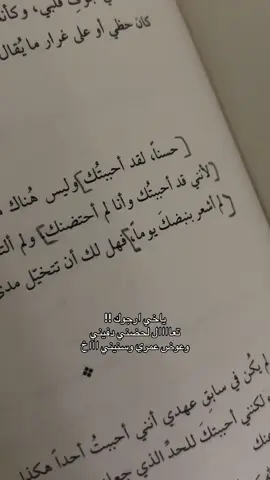 جوف قلبي، وكأنه
كان حظي أو على غرار ما يُقال
[حسناً، لقد أحببتُك] وليس هُناك
[لأنني قد أحببتُك وأنا لم أحتضنك] ولم
[لم أشعر بنبضك يوماً،] فهل لك أن تتخيّل مدى
ياخي ارجوك !!
تعاااال لحضني دفيني
وعوض عمري وسنيني اااخ
لم يكُن في سابق عهدي أنني أحببتُ أحداً هكذا
لكنني أحببتك للحدّ الذي
عنك